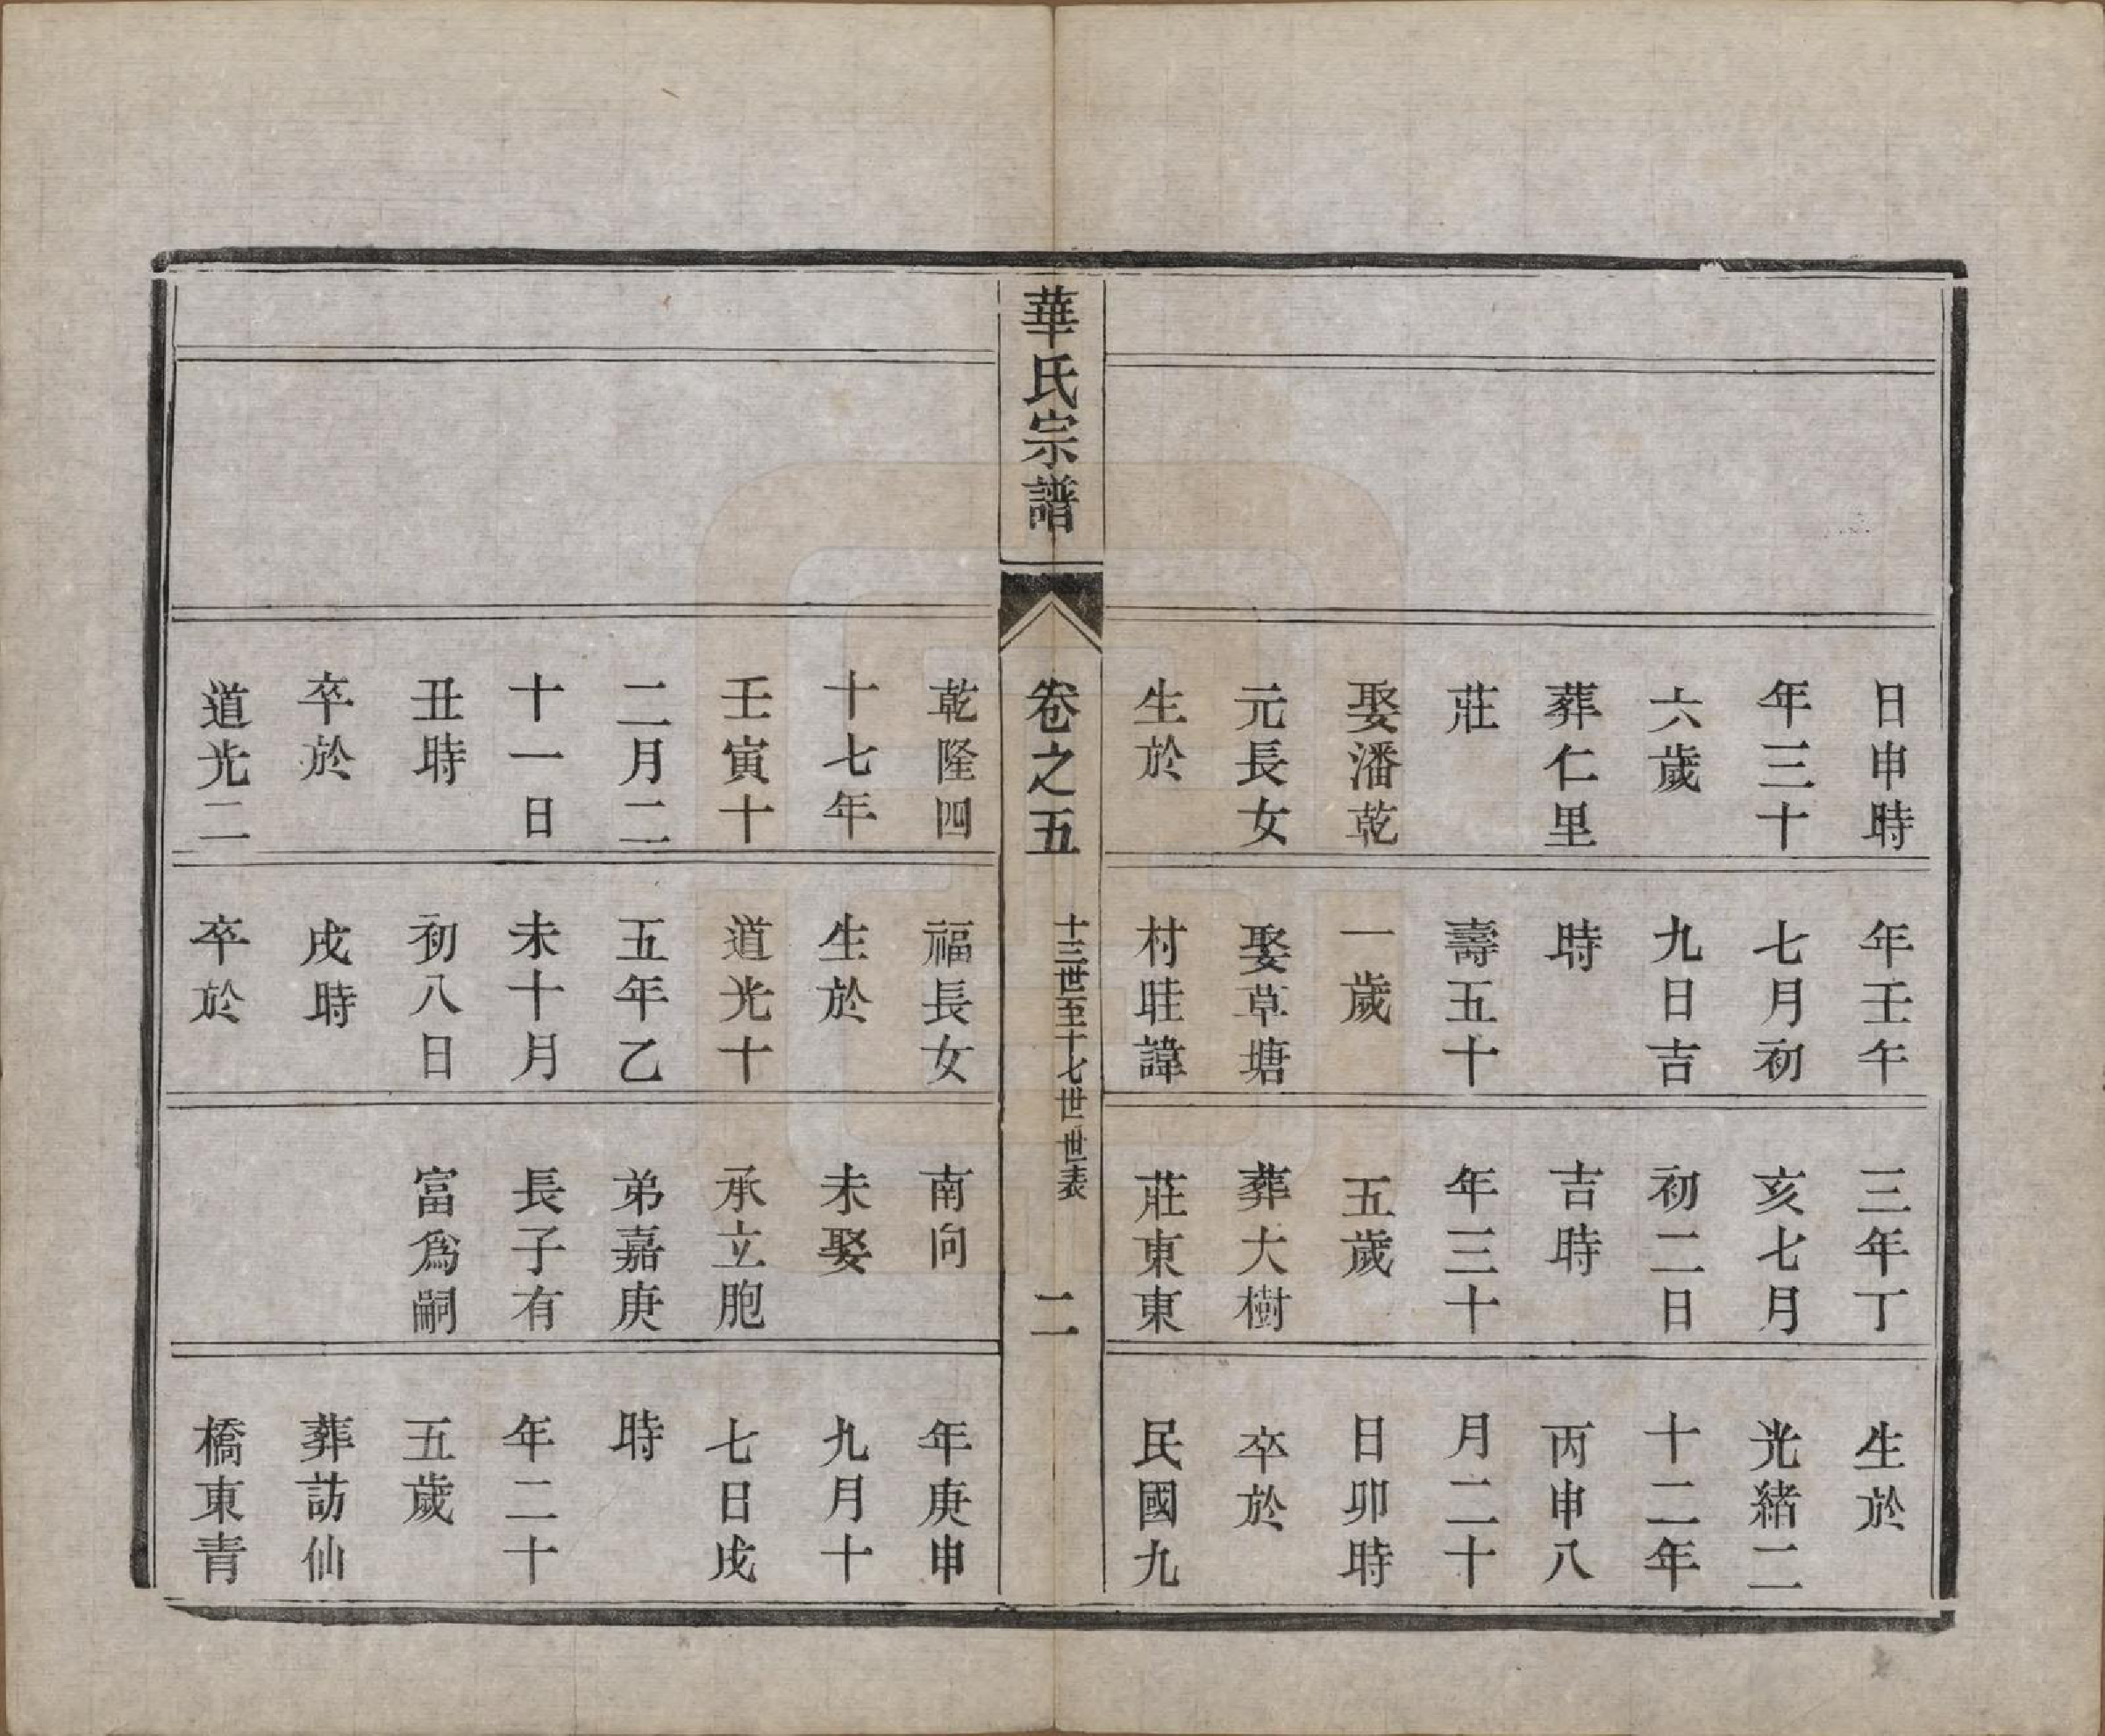 日申時
年三十
六歲
葬仁里
莊
娶潘乾
元長女
生於
年壬午
七月初
九日吉
時
壽五十
一歲
娶草塘
村眭諱
三年丁
亥七月
初二日
吉時
年三十
五歲
葬大樹
莊東東
生於
光緒二
十二年
丙申八
月二十
日卯時
卒於
民國九
華氏宗譜
卷之五
十三世至十七世世表
二
乾隆四
十七年
壬寅十
二月二
十一日
丑時
卒於
道光二
福長女
生於
道光十
五年乙
未十月
初八日
戌時
卒於
南向
未娶
承立胞
弟嘉庚
長子有
富爲嗣
年庚申
九月十
七日戌
時
年二十
五歲
葬訪仙
橋東青